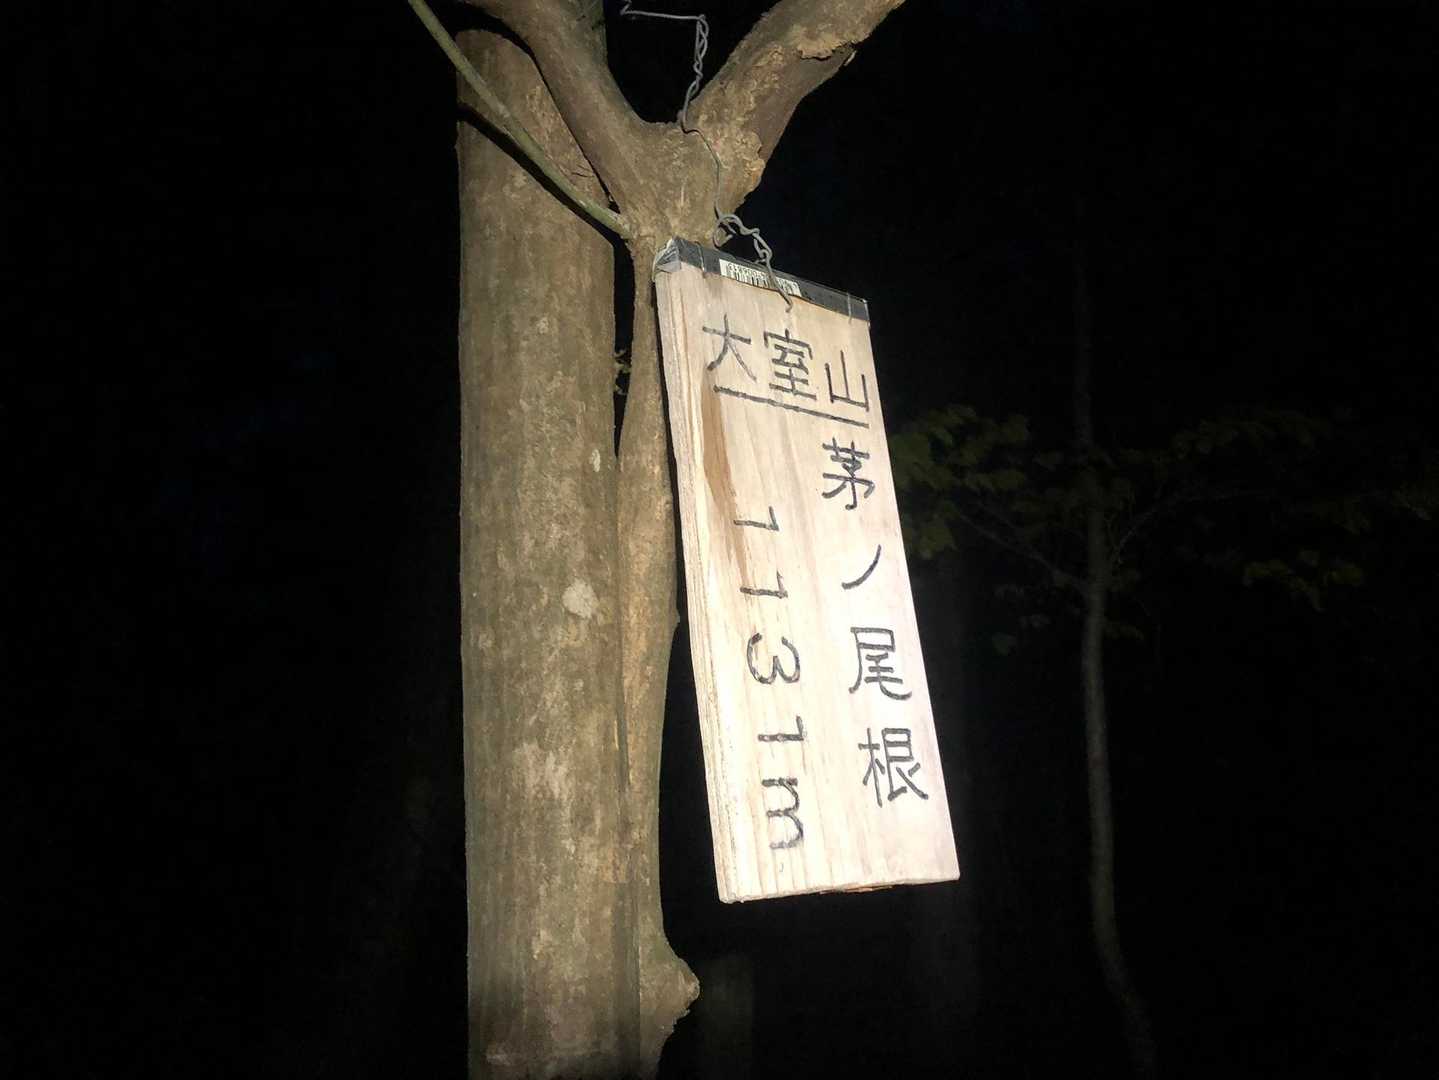 大室山
茅ノ尾根
1131m